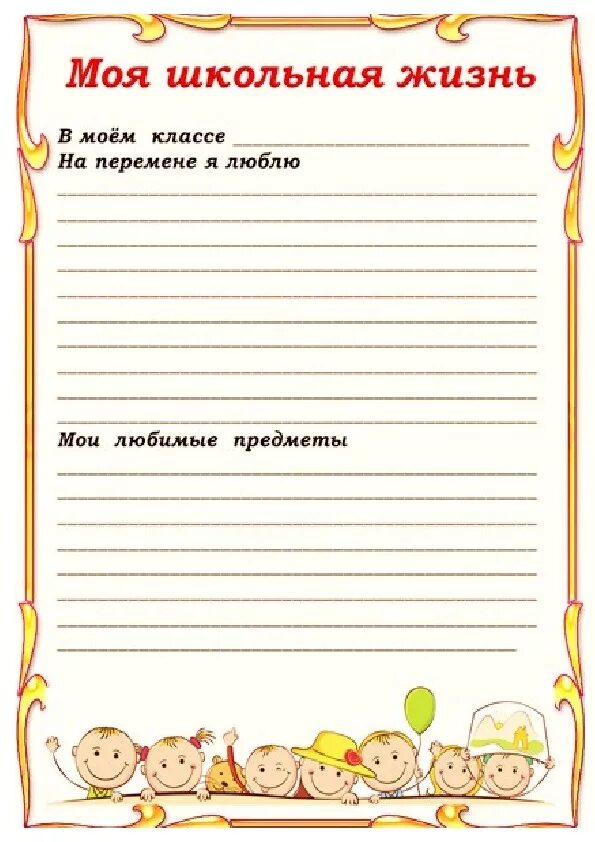 Моя школьная жизнь
В моём классе
На перемене я люблю
Мои любимые предметы